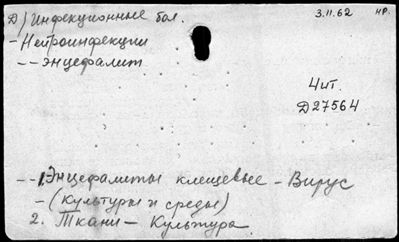 Д) Инфекционные бол. 3.II.62 нр.
- Нейроинфекции
-- энцефалит
Чит.
Д27564
-- 1. Энцефалиты клещевые - Вирус
- (культуры и среды)
2. Ткани - Культура